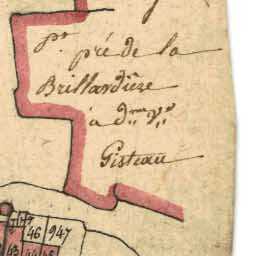 p.^t pré de la
Brillardière
à d^me V^ve
Gisteau
47
46 947
43 44 45